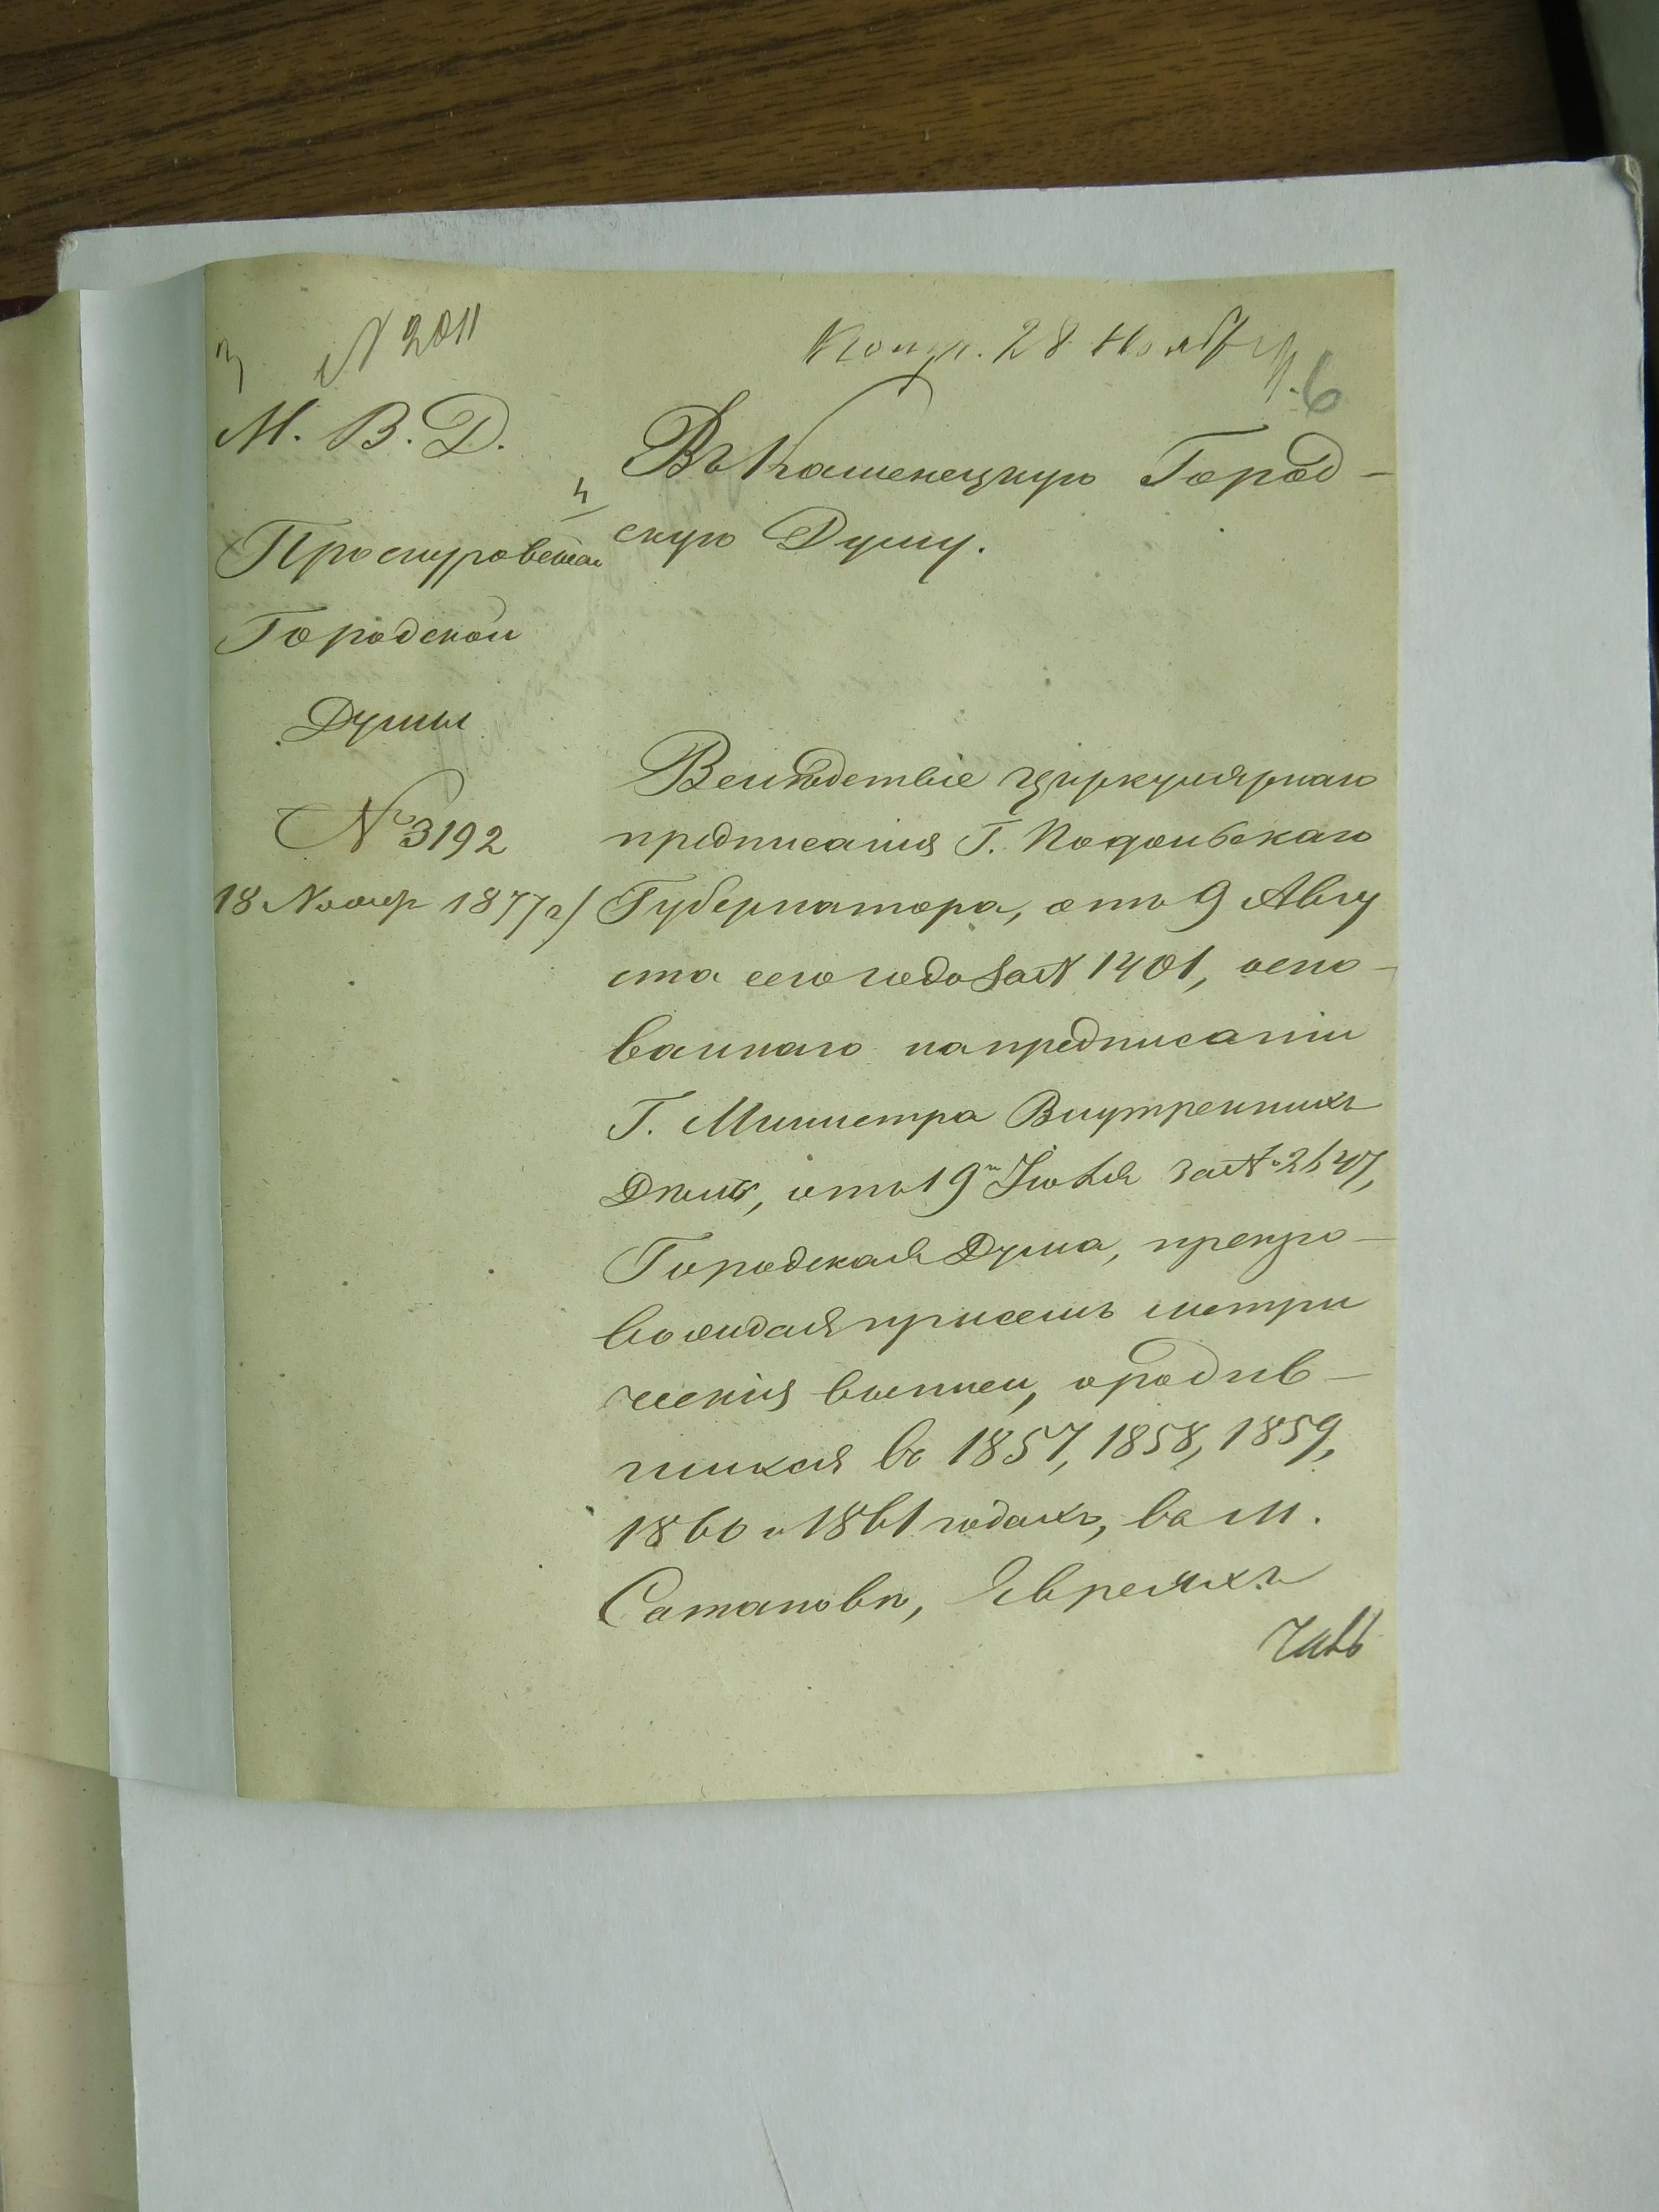 № 2011
28 Ноября
6
М. В. Д.
Проскуровской
Городской
Думы
№ 3192
18 Ноябр 1877 г/
Въ Каменецкую Город-
скую Думу.
Вслѣдствіе циркулярнаго
предписанія Г. Подольскаго
Губернатора, отъ 9 Авгу
ста сего года за № 1401, осно-
ваннаго на предписаніи
Г. Министра Внутреннихъ
Дѣлъ, отъ 19 Іюля за №
Городская Дума, препро-
вождая при семъ метри
ческія выписи, о родив-
шихся въ 1857, 1858, 1859,
1860 и 1861 годахъ, въ м.
Сатановѣ, Евреяхъ